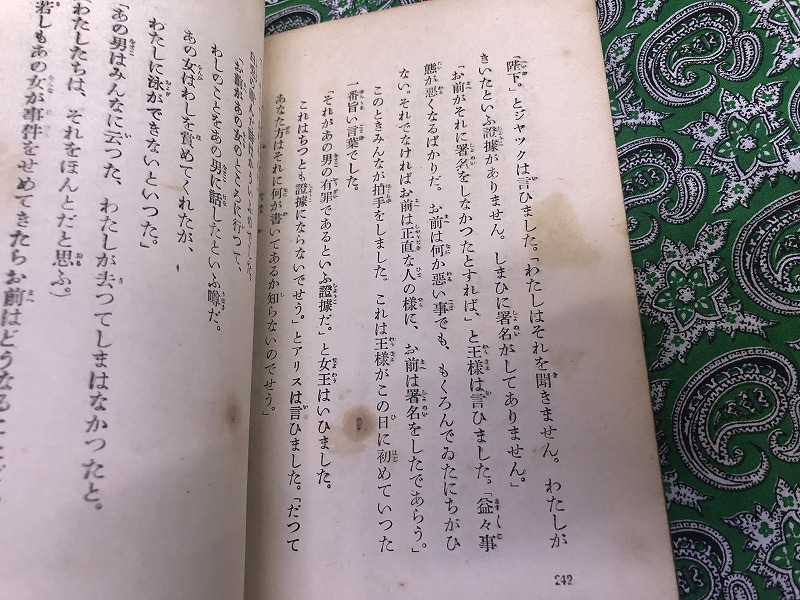 「陛下。」とジャックは言ひました。「わたしはそれを聞きません。わたしが
きいたといふ證據がありません。しまひに署名がしてありません。」
「お前がそれに署名をしなかつたとすれば、」と王様は言ひました。「益々事
態が悪くなるばかりだ。お前は何か悪い事でも、もくろんでゐたにちがひ
ない、それでなければお前は正直な人の様に、お前は署名をしたであらう。」
このときみんなが拍手をしました。これは王様がこの日に初めていつた
一番旨い言葉でした。
「それがあの男の有罪であるといふ證據だ。」と女王はいひました。
これはちつとも證據にならないでせう。」とアリスは言ひました。「だつて
あなた方はそれに何が書いてあるか知らないのでせう。」
242
「お前があの女のところに行つて、
わしのことをあの男に話したといふ噂だ。
あの女はわしを賞めてくれたが、
わたしに泳ができないといつた。」
「あの男はみんなに云つた、わたしが去つてしまはなかつたと。
（わたしたちは、それをほんとだと思ふ。）
若しもあの女が事件をせめてきたらお前はどうなること